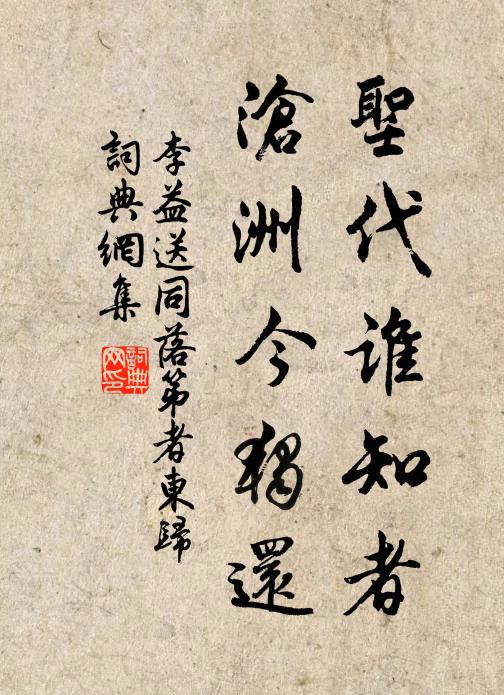 聖代誰知者
滄洲今獨還
李益送同落第者東歸
詞典網集
詞典网印